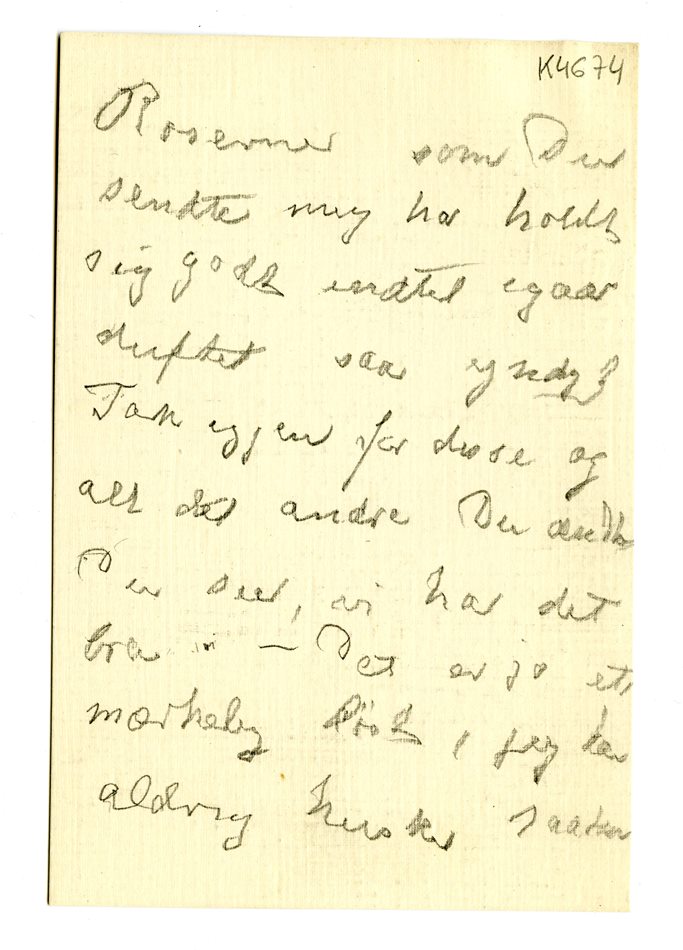 K4674
Roserner som Du
sendte mig har holdt
sig godt indtil igaar
duftet saa
Tak igjen for disse og
alt det andre Du
Du seer, vi har det
bra – Det er jo et
mærkelig , jeg kan
aldrig husker